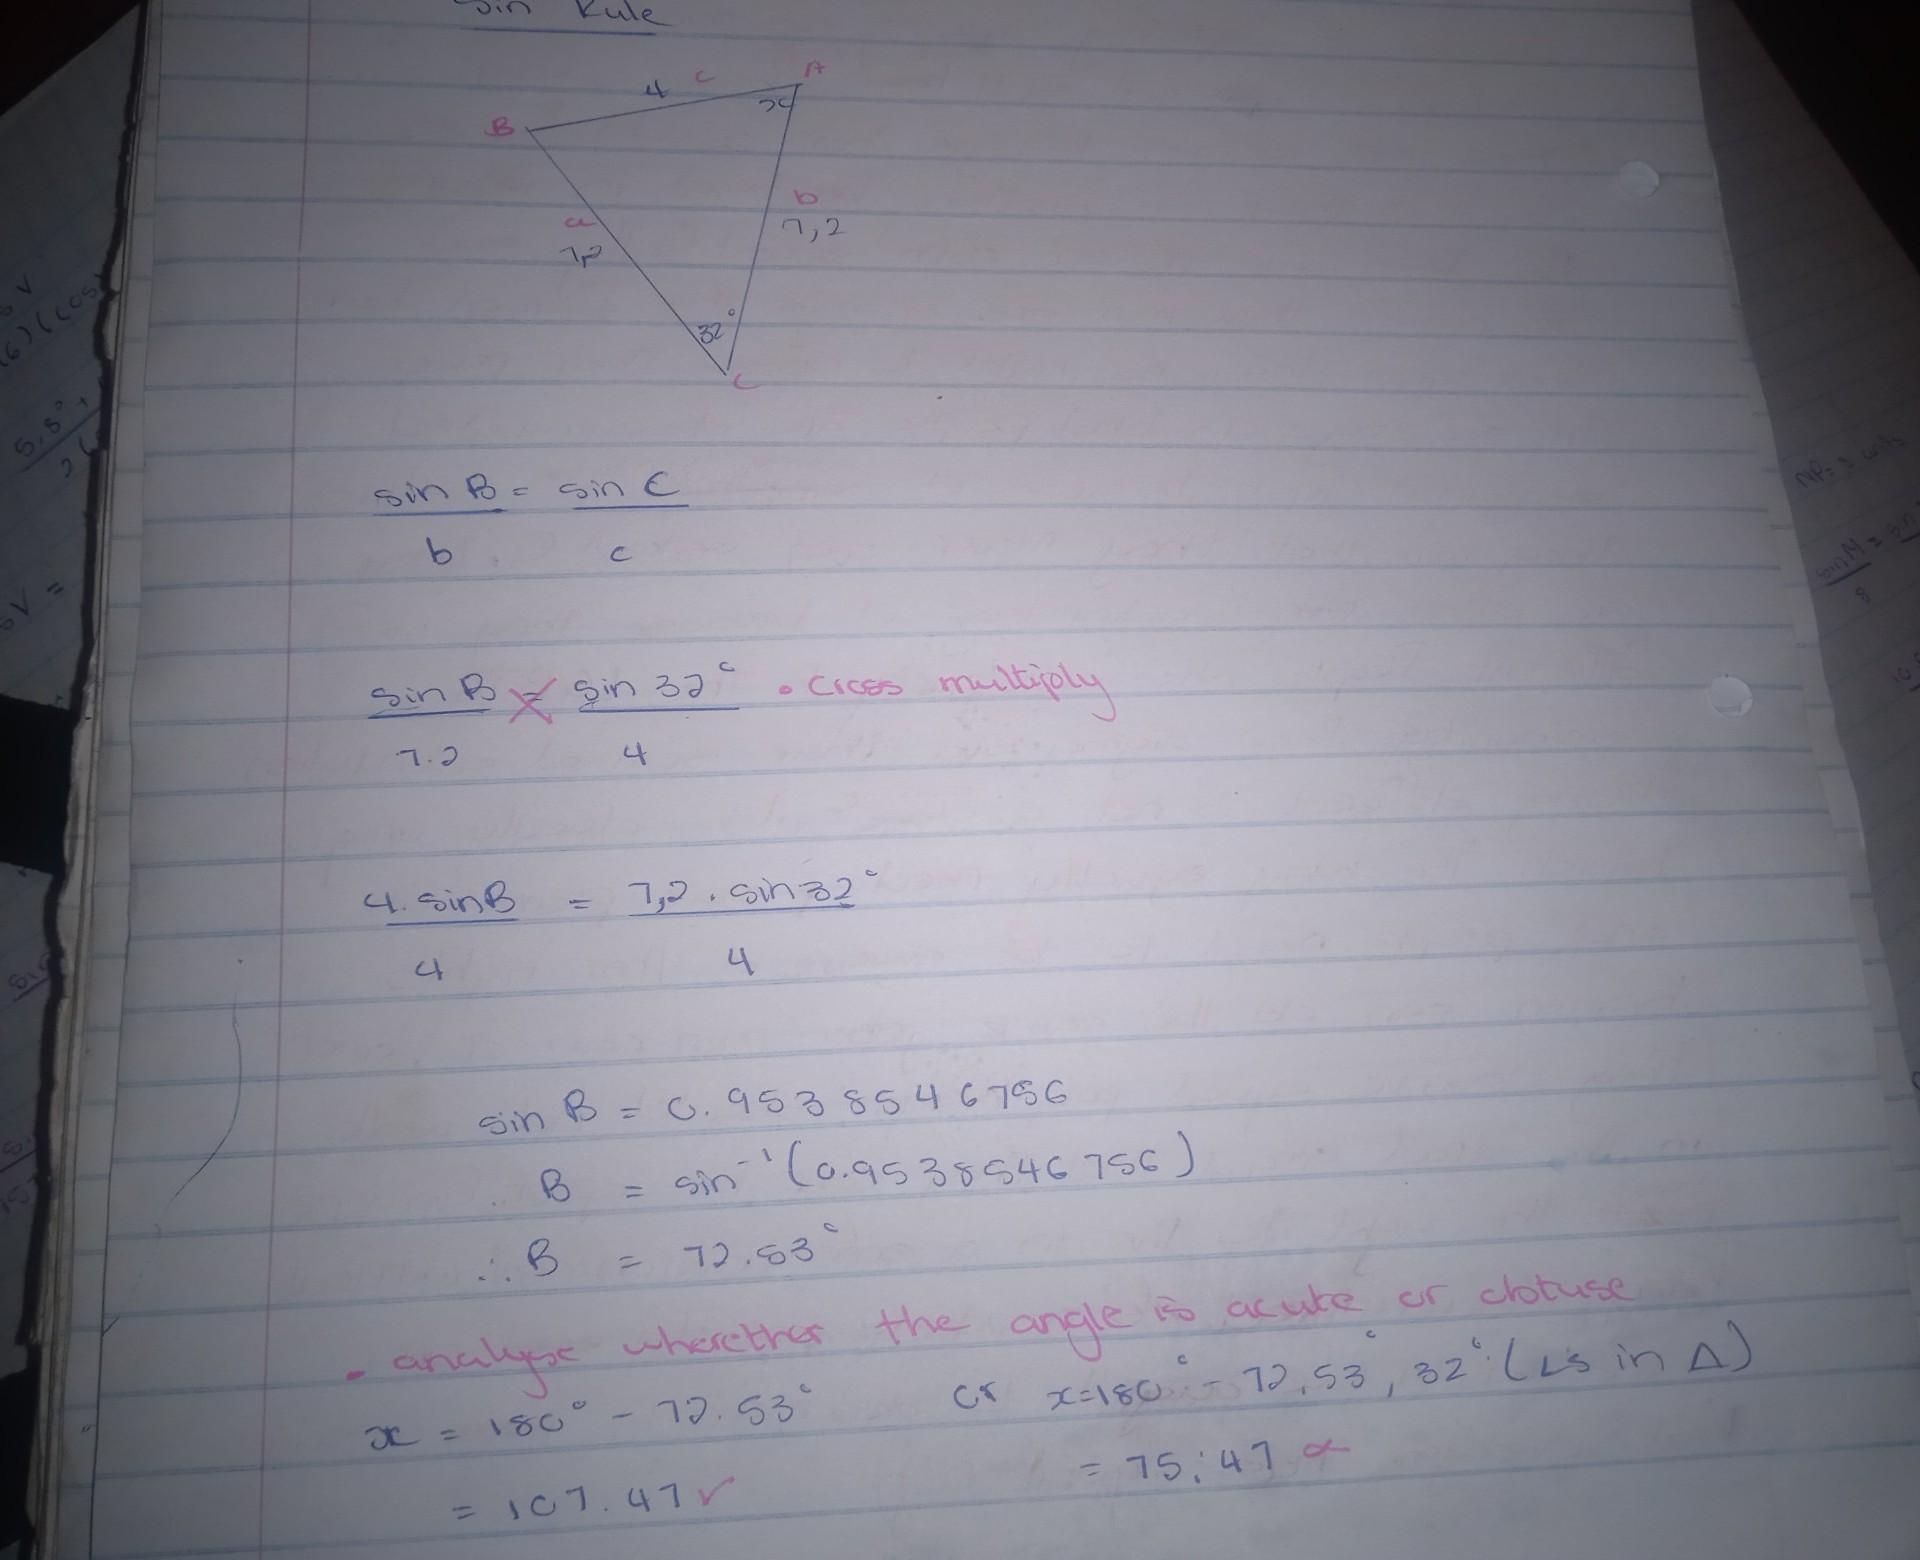 Sin Rule
4 c A
x
B
b
a 7,2
7,2
32°
C
sin B = sin C
b c
sin B = sin 32° • cross multiply
7.2 4
4. sinB = 7,2 . sin 32°
4 4
sin B = 0.9538546756
B = sin⁻¹ (0.9538546756)
∴ B = 72.53°
- analyse wherether the angle is acute or obtuse
x = 180° - 72.53° or x=180° - 72,53°, 32° (∠s in Δ)
= 107.47 ✓ = 75.47